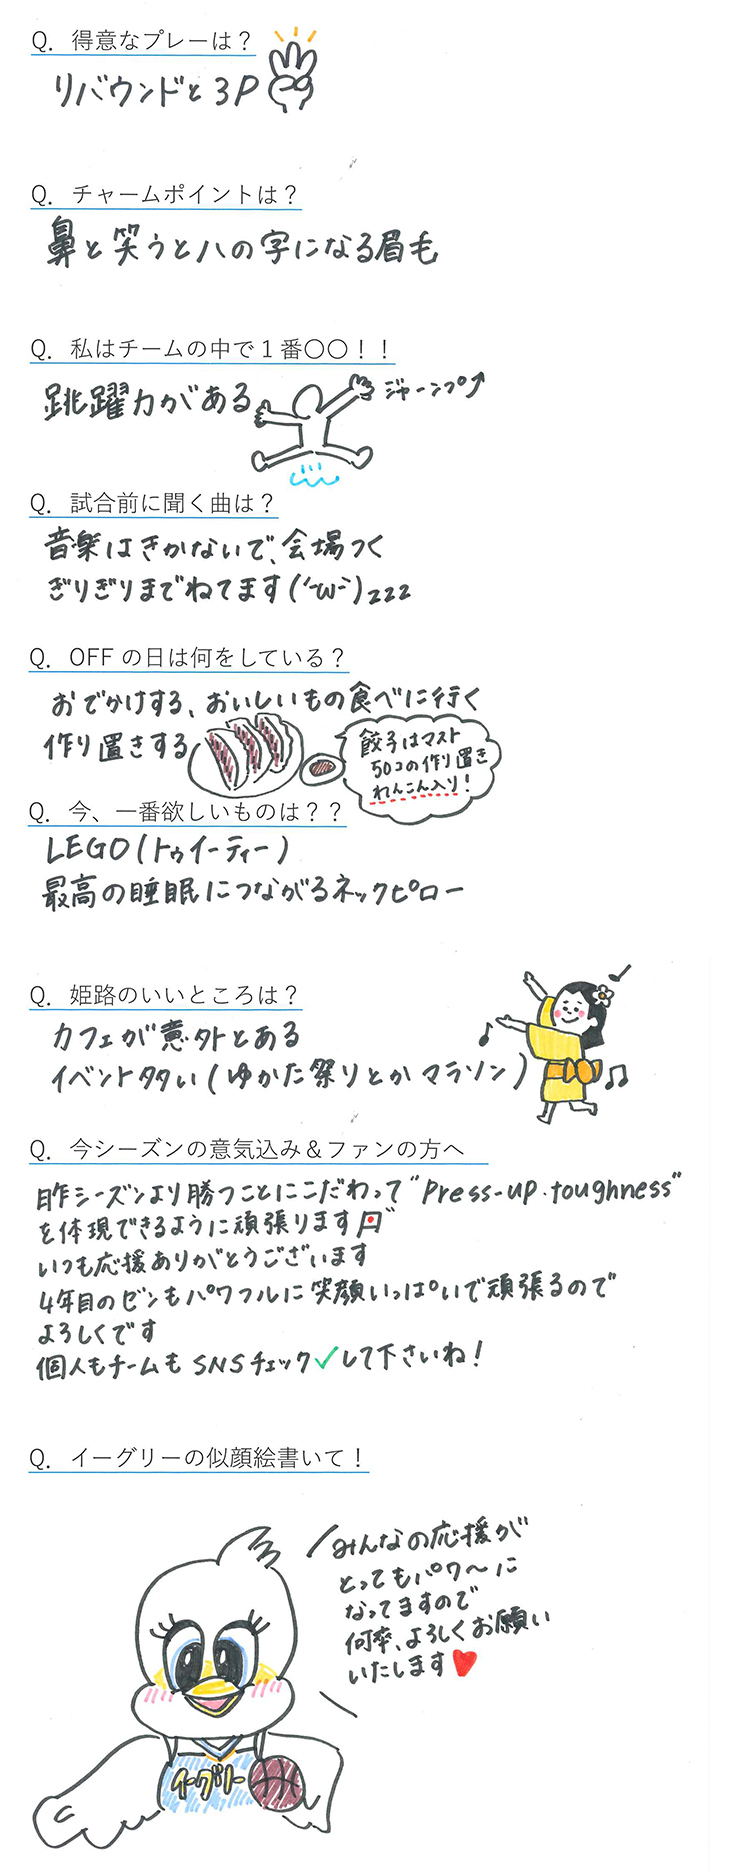 Q. 得意なプレーは？
リバウンドと3P
Q. チャームポイントは？
鼻と笑うとハの字になる眉毛
Q. 私はチームの中で１番〇〇！！
跳躍力がある
ジャーンプ↑
Q. 試合前に聞く曲は？
音楽はきかないで、会場つく
ぎりぎりまでねてます(´-ω-`)zzz
Q. OFF の日は何をしている？
おでかけする、おいしいもの食べに行く
作り置きする
餃子はマスト
50コの作り置き
れんこん入り！
Q. 今、一番欲しいものは？？
LEGO(トゥイーティー)
最高の睡眠につながるネックピロー
Q. 姫路のいいところは？
カフェが意外とある
イベント多い(ゆかた祭りとかマラソン)
Q. 今シーズンの意気込み＆ファンの方へ
昨シーズンより勝つことにこだわって“Press-up・toughness”
を体現できるように頑張ります
いつも応援ありがとうございます
4年目のゼンもパワフルに笑顔いっぱいで頑張るので
よろしくです
個人もチームもSNSチェック✓して下さいね！
Q. イーグリーの似顔絵書いて！
みんなの応援が
とってもパワ〜に
なってますので
何卒、よろしくお願い
いたします♥
イーグリー